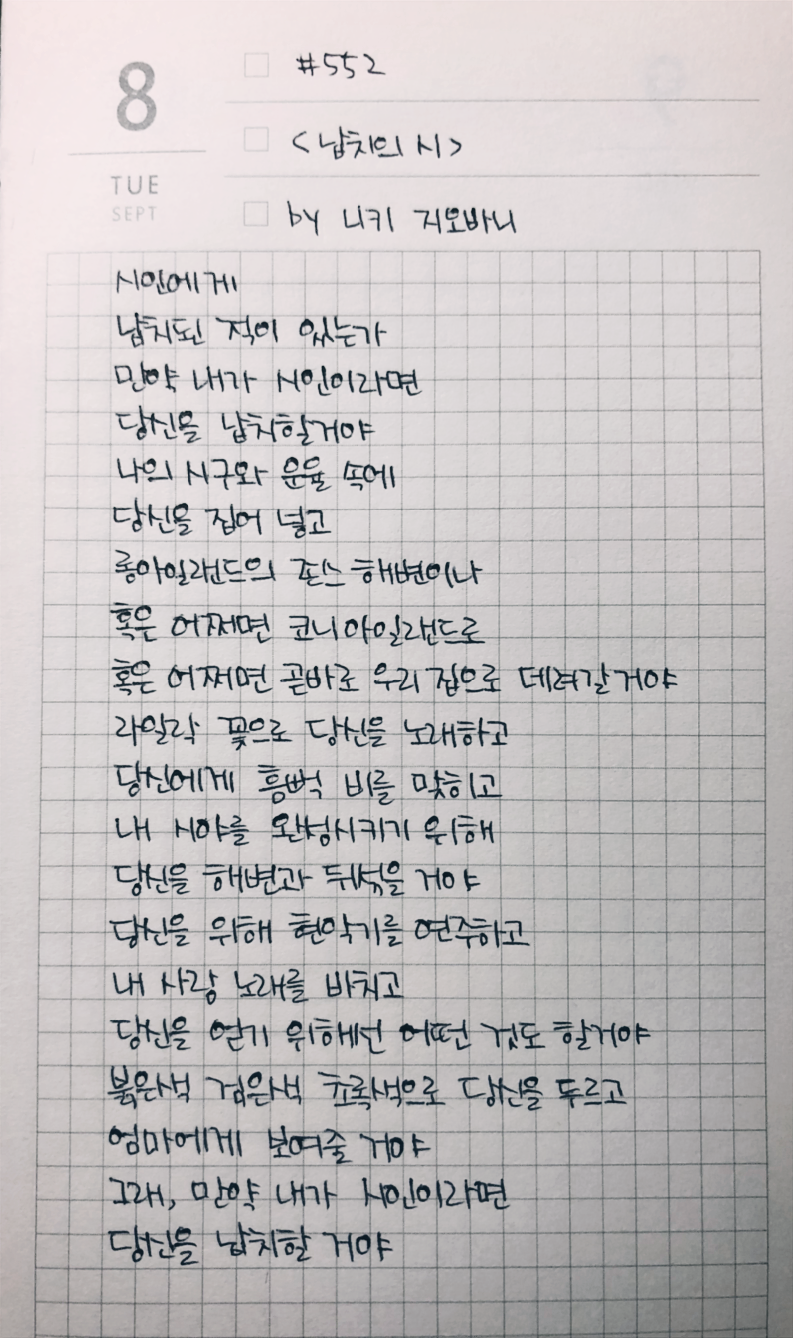 8
TUE
SEPT
#552
<납치의 시>
by 니키 지오바니
시인에게
납치된 적이 있는가
만약 내가 시인이라면
당신을 납치할거야
나의 시구와 운율 속에
당신을 집어 넣고
롱아일랜드의 존스 해변이나
혹은 어쩌면 코니아일랜드로
혹은 어쩌면 곧바로 우리 집으로 데려갈거야
라일락 꽃으로 당신을 노래하고
당신에게 흠뻑 비를 맞히고
내 시야를 완성시키기 위해
당신을 해변과 뒤섞을 거야
당신을 위해 현악기를 연주하고
내 사랑 노래를 바치고
당신을 얻기 위해선 어떤 것도 할거야
붉은색 검은색 초록색으로 당신을 두르고
엄마에게 보여줄 거야
그래, 만약 내가 시인이라면
당신을 납치할 거야